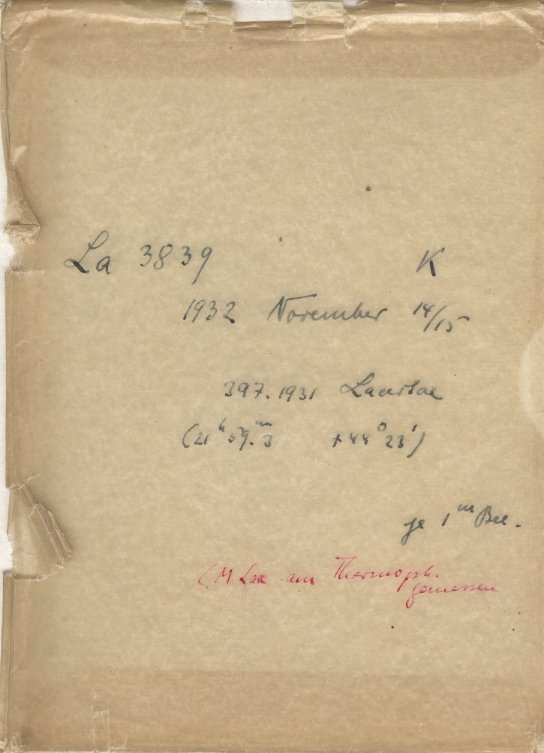 La 3839 K
1932 November 14/15
397.1931 Lacertae
(21ʰ59.ᵐ3 +44°23′)
je 1ᵐ Bel.
am Thermoph.
gemessen